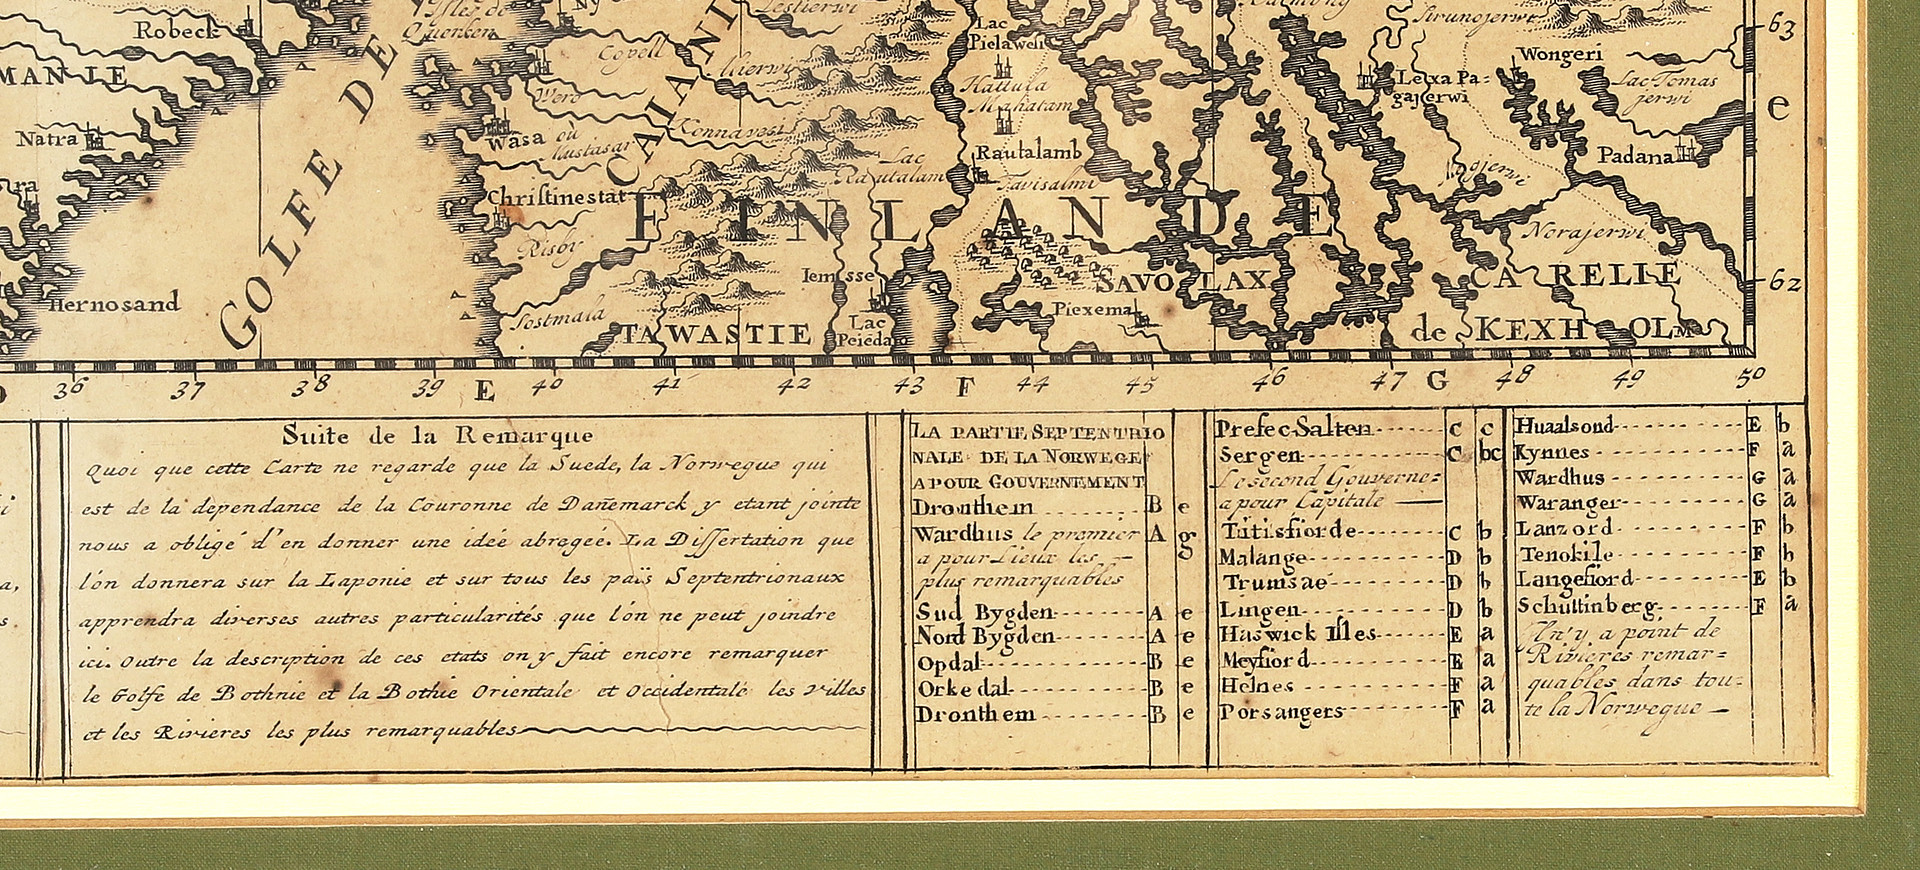 Robeck
Isles de
Quenken
Lestierwi
Lac
Pielawesi
Sirunojerwi
63
MANIE
GOLFE DE
CAIANI
Copell
Wongeri
Kattula
Mahatam
Leixa Pa=
gajerwi
Lac Tomas
jerwi
e
Wero
Natra
Wasa où
Mustasar
Kennavesi
Rautalamb
Padana
Lac
Rautalam
Tavisalmi
Christinestat
FINLANDE
Norajerwi
Risby
Iemsse
SAVOLAX
CARELIE
62
Hernosand
Sostmala
TAWASTIE
Lac
Peieda
Piexema
de KEXHOLM
36 37 38 39 E 40 41 42 43 F 44 45 46 47 G 48 49 50
Suite de la Remarque
quoi que cette Carte ne regarde que la Suede, la Norwegue qui
est de la dependance de la Couronne de Dañemarck y etant jointe
nous a obligé d'en donner une idée abregée. La Dissertation que
l'on donnera sur la Laponie et sur tous les païs Septentrionaux
apprendra diverses autres particularités que l'on ne peut joindre
ici. Outre la description de ces etats on y fait encore remarquer
le Golfe de Bothnie et la Bothie Orientale et Occidentale les Villes
et les Rivieres les plus remarquables
LA PARTIE SEPTENTRIO
NALE DE LA NORWEGE
A POUR GOUVERNEMENT
Dronthem B e
Wardhus le premier A g
a pour Lieux les
plus remarquables
Sud Bygden A e
Nord Bygden A e
Opdal B e
Orkedal B e
Dronthem B e
Prefec Salten C c
Sergen C bc
Le second Gouverne=
a pour Capitale
Titisfiorde C b
Malange D b
Trumsae D b
Lingen D b
Haswick Isles E a
Meyfiord E a
Helnes F a
Porsangers F a
Huaalsond E b
Kynnes F a
Wardhus G a
Waranger G a
Lanzord F b
Tenokile F b
Langefiord E b
Schuttinberg F a
Il n'y a point de
Rivieres remar=
quables dans tou=
te la Norwegue